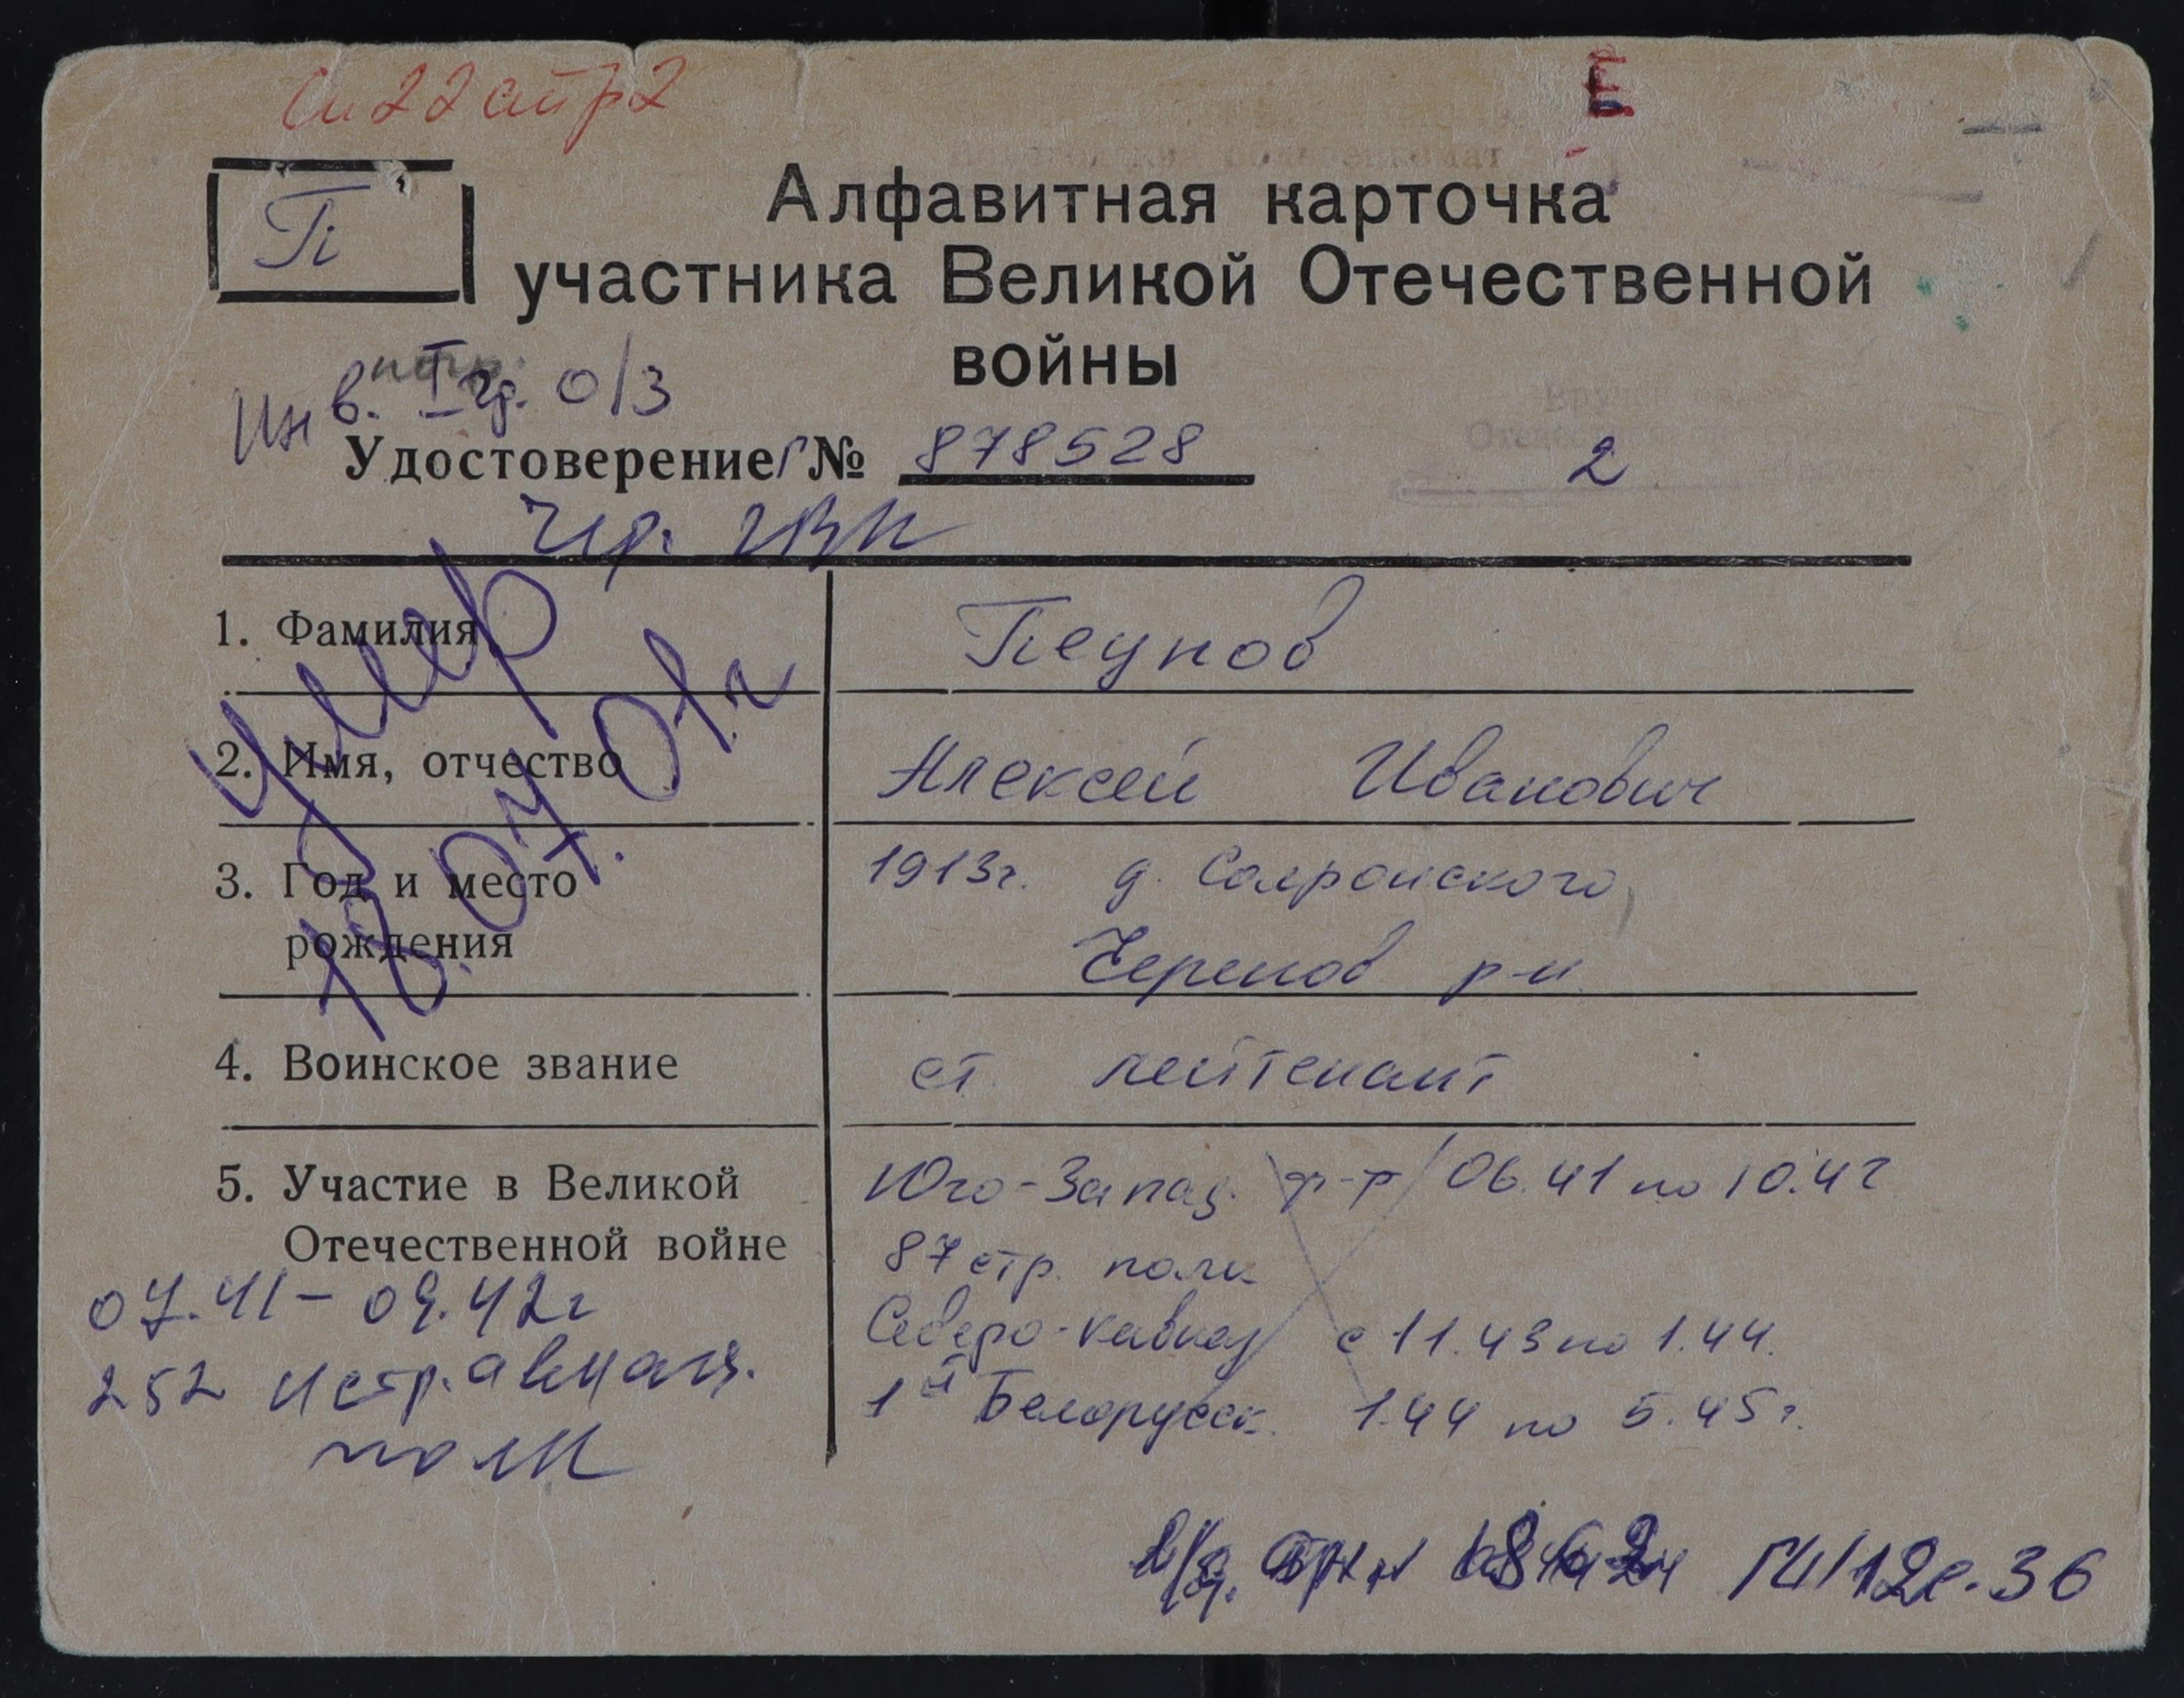 См 22 стр 2
Е
П
Алфавитная карточка
участника Великой Отечественной
войны
Инв. I гр. О/З
Удостоверение № 878528
2
Чер. ГВК
1. Фамилия
Пеунов
2. Имя, отчество
Алексей Иванович
3. Год и место
рождения
1913г. д.
Черепов р-н
Умер
18.07.01г
4. Воинское звание
ст. лейтенант
5. Участие в Великой
Отечественной войне
Юго-Запад. ф-т 06.41 по 10.42
87 стр. полк
Северо-Кавказ с 11.43 по 1.44.
1й Белорусск. 1.44 по 5.45г.
07.41-09.42г
252 истр. авиац.
полк